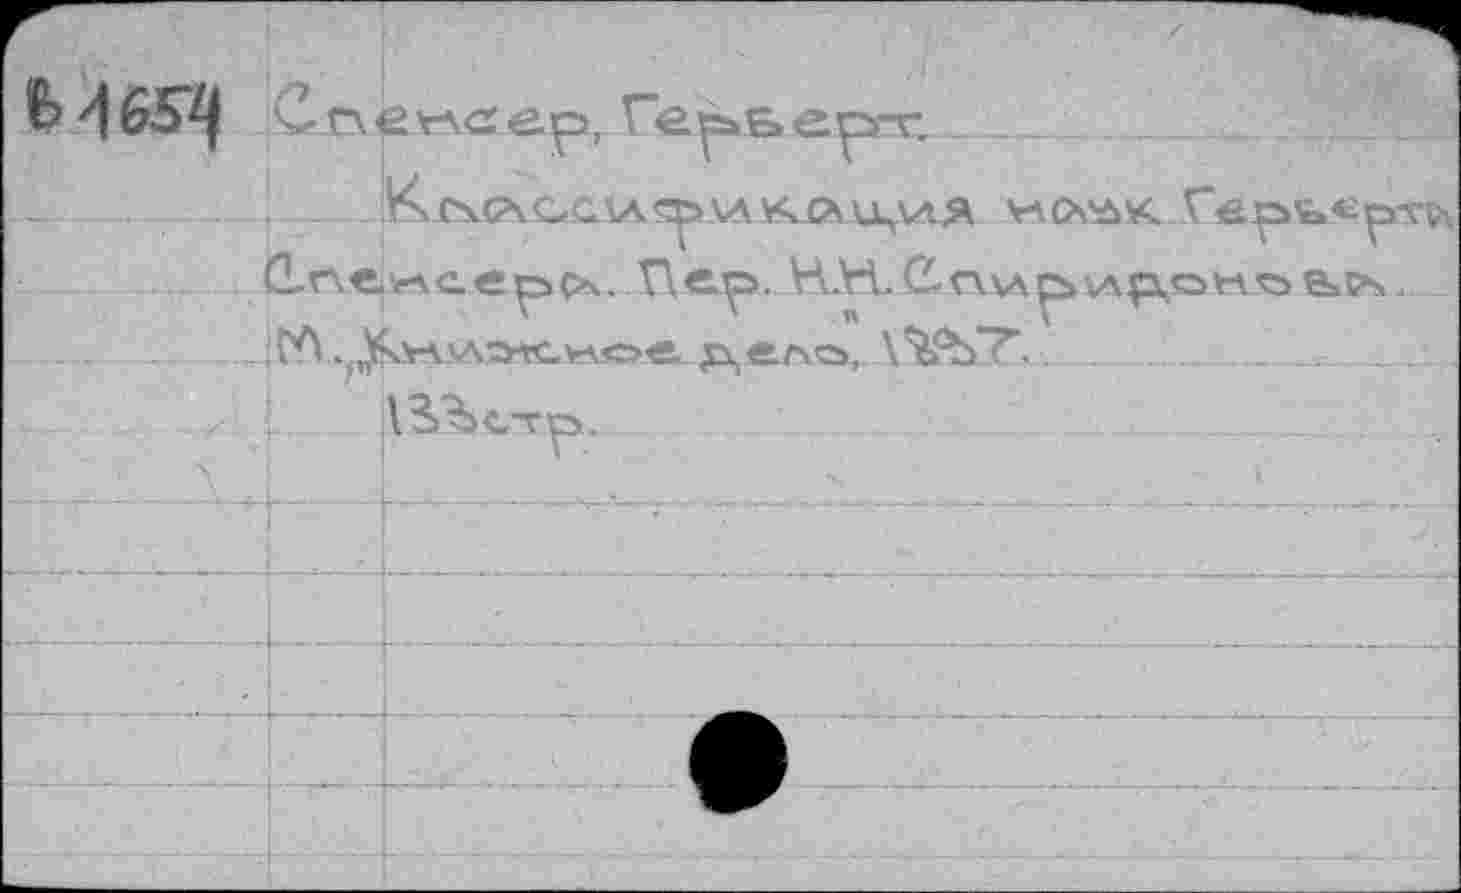 Б 1654 Спенсер, Герберт.
Классификация наук Герберта
Спенсера. Пер. Н.Н. Спиридонова.
М. „Книжное дело", 1897.
133стр.